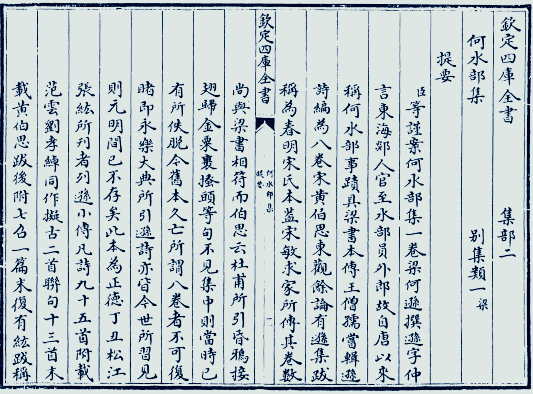 欽定四庫全書 集部二
何水部集 別集類一 梁
提要
臣等謹案何水部集一卷梁何遜撰遜字仲
言東海郯人官至水部員外郎故自唐以來
稱何水部事蹟具梁書本傳王僧孺嘗輯遜
詩編為八卷宋黄伯思東觀餘論有遜集跋
稱為春明宋氏本蓋宋敏求家所傳其卷數
欽定四庫全書
何水部集
提要
一
尚與梁書相符而伯思云杜甫所引昏鴉接
翅歸金粟裹搔頭等句不見集中則當時已
有所佚脱今舊本久亡所謂八卷者不可復
睹即永樂大典所引遜詩亦皆今世所習見
則元明間已不存矣此本為正德丁丑松江
張紘所刊首列遜小傳凡詩九十五首附載
范雲劉孝綽同作擬古二首聯句十三首末
載黄伯思跋後附七召一篇末復有紘跋稱